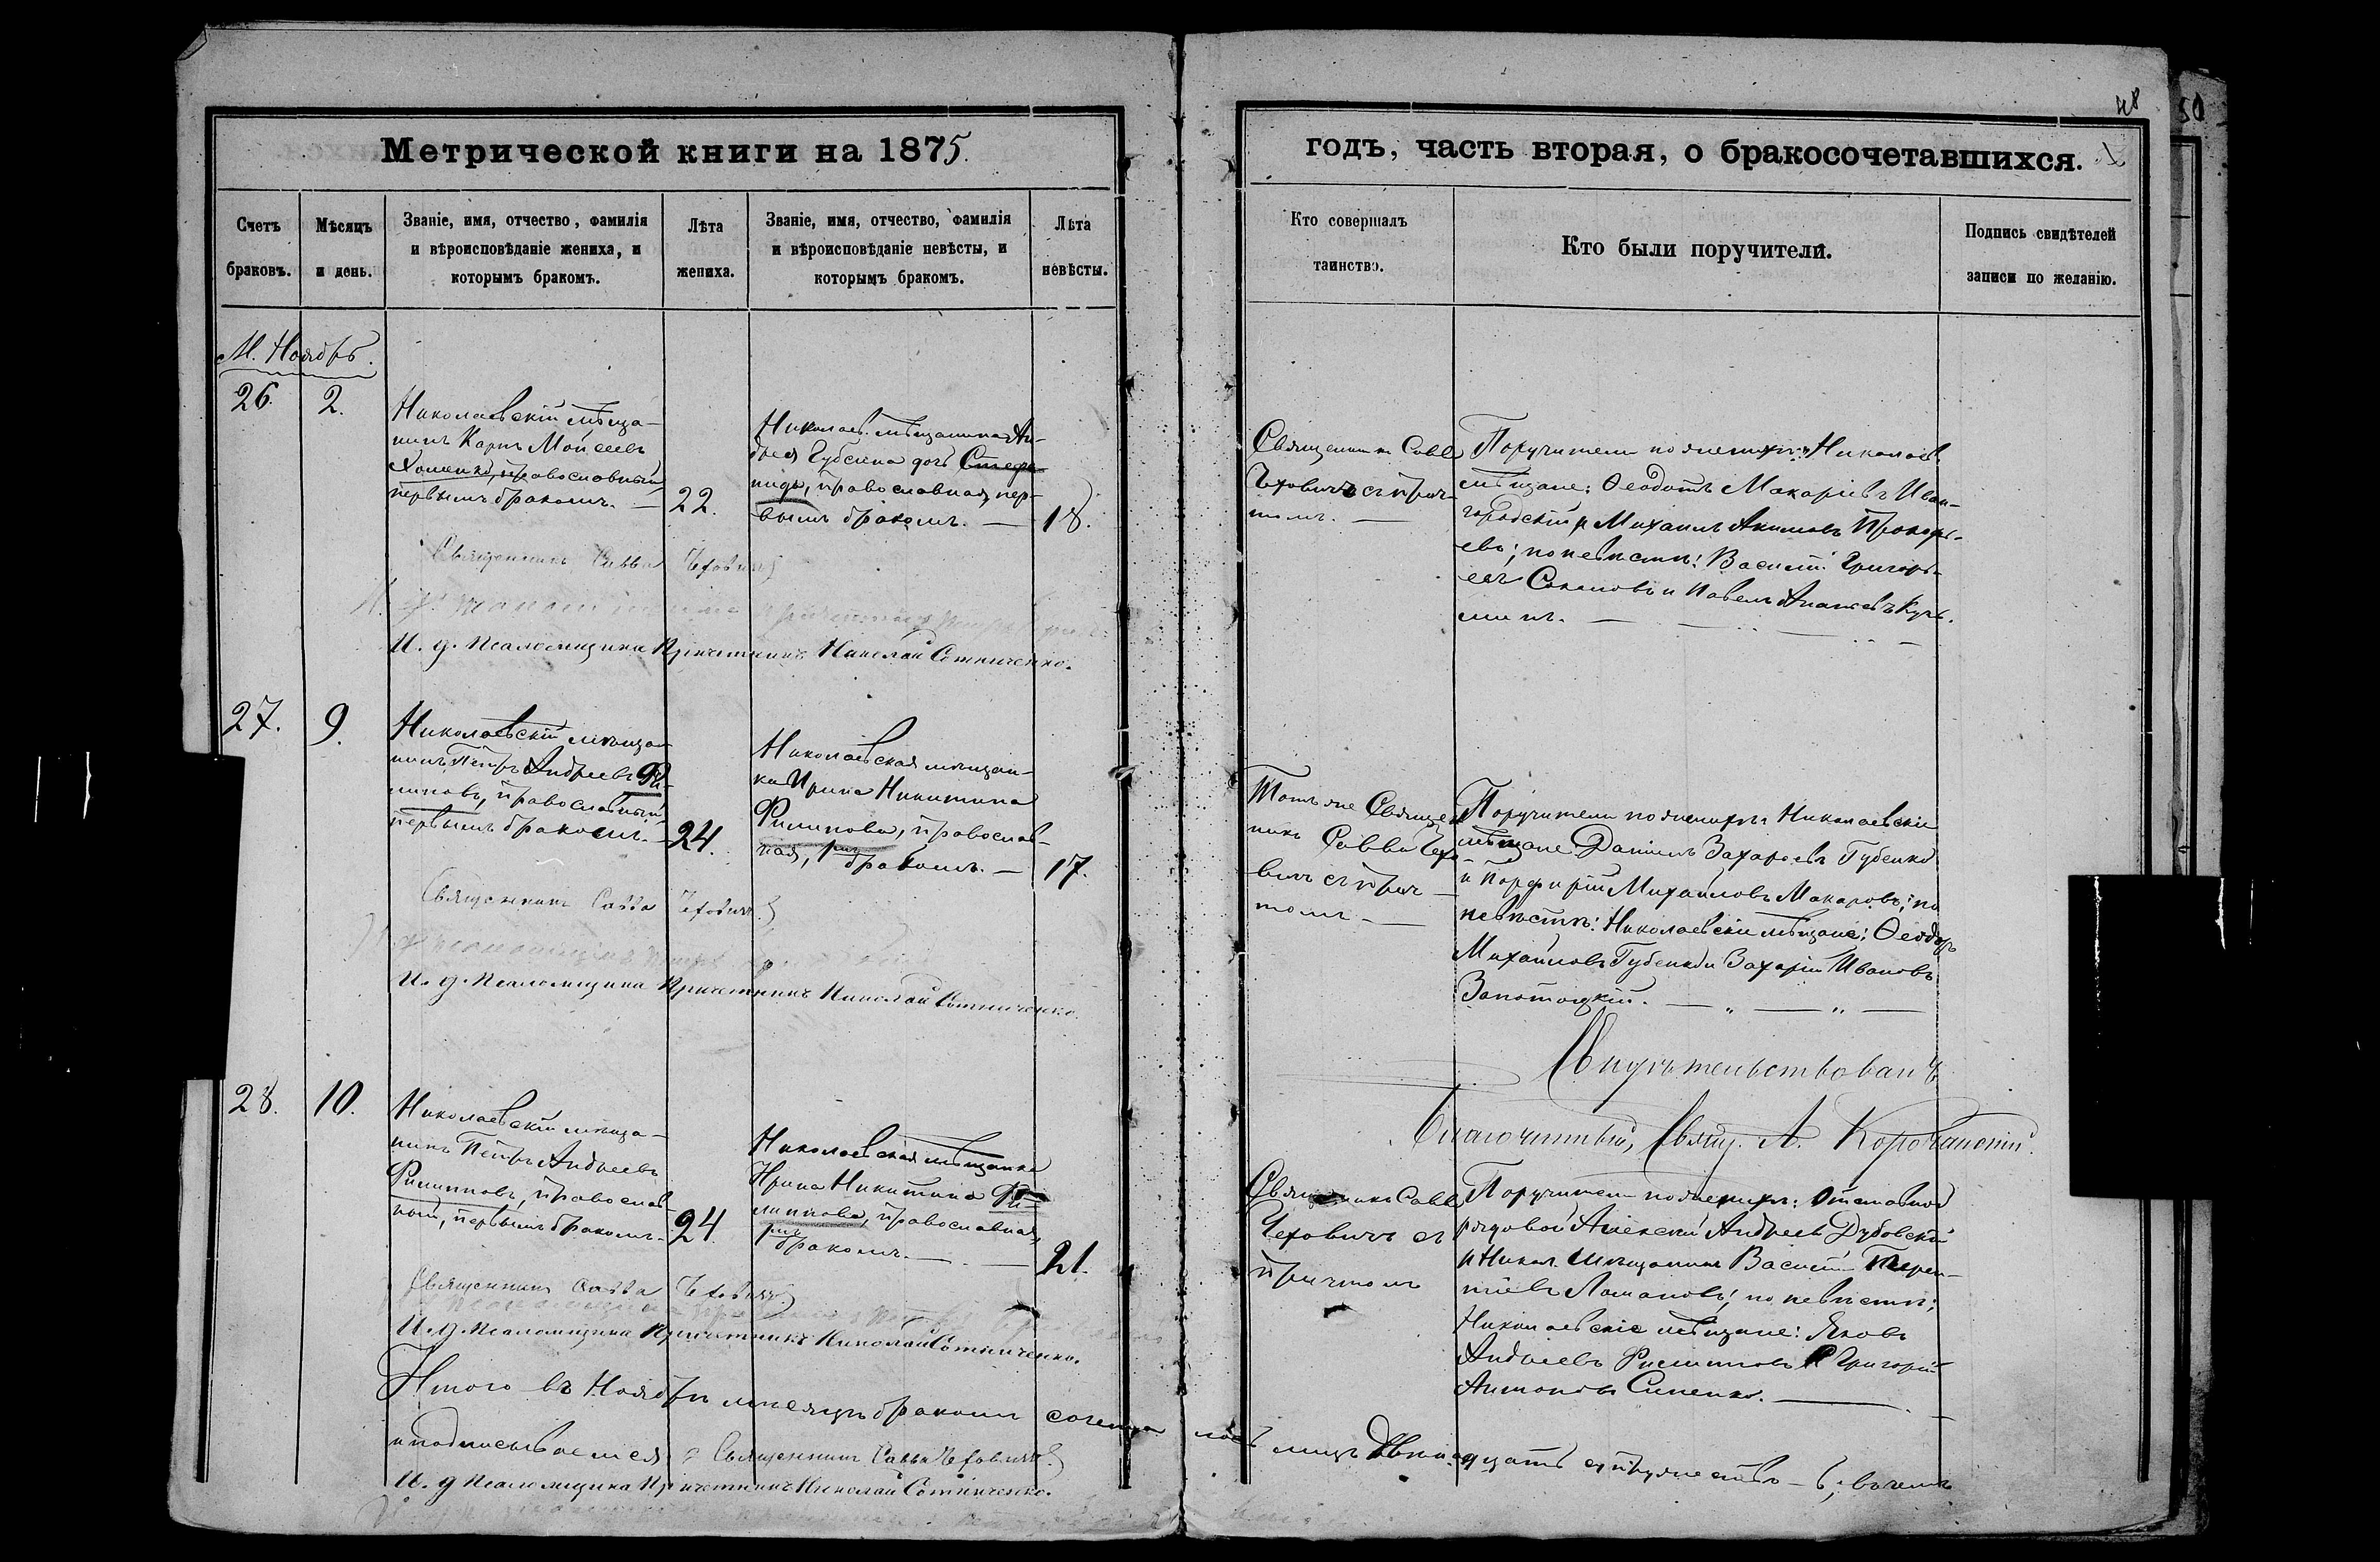 48
50
Метрической книги на 1875.
годъ, часть вторая, о бракосочетавшихся.
Счетъ браковъ.
Мѣсяцъ и день.
Званіе, имя, отчество, фамилія
и вѣроисповѣданіе жениха, и
которымъ бракомъ.
Лѣта жениха.
Званіе, имя, отчество, фамилія
и вѣроисповѣданіе невѣсты, и
которымъ бракомъ.
Лѣта невѣсты.
Кто совершалъ
таинство.
Кто были поручители.
Подпись свидѣтелей
записи по желанію.
М. Ноябрь.
26.
2.
Николаевскій мѣща-
нинъ Карпъ Мойсеевъ
Хоменко, православный,
первымъ бракомъ. —
22.
Николаев. мѣщанина Ан-
дрея Губсина дочь Стефа-
нида, православная, пер-
вымъ бракомъ. —
18.
Священникъ Савва
Чеховичъ съ прич-
томъ. —
Поручители по женихѣ: Николаев.
мѣщане: Ѳеодотъ Макаріевъ Иван-
городскій и Михаилъ Акимовъ Прокофь-
евъ; по невѣстѣ: Василій Григорь-
евъ Соколовъ и Павелъ Ананьевъ Кузь-
минъ. —
Священникъ Савва Чеховичъ
И. д. Псаломщика Причетникъ Николай Сотниченко.
27.
9.
Николаевскій мѣща-
нинъ Петръ Андреевъ Фи-
липовъ, православный,
первымъ бракомъ. —
24.
Николаевская мѣщан-
ка Ирина Никитина
Филипова, православ-
ная, 1мъ бракомъ. —
17.
Тотъ же Священ-
никъ Савва Чехо-
вичъ съ прич-
томъ —
Поручители по женихѣ: Николаевскіе
мѣщане Даніилъ Захаровъ Губенко
и Порфирій Михайловъ Макаровъ; по
невѣстѣ: Николаевскіе мѣщане: Ѳеодоръ
Михайловъ Губенко и Захарій Ивановъ
Запотоцкій. — „ — „ —
Священникъ Савва Чеховичъ
И. д. Псаломщика Причетникъ Николай Сотниченко.
Свидѣтельствовалъ
Благочинный, Свящ. А.
28.
10.
Николаевскій мѣща-
нинъ Петръ Андреевъ
Филипповъ, православ-
ный, первымъ бракомъ.
24.
Николаевская мѣщанка
Ирина Никитина Фи-
липпова, православная,
1мъ бракомъ. —
21.
Священникъ Савва
Чеховичъ съ
причтомъ
Поручители по женихѣ: Отставной
рядовой Алексѣй Андреевъ Дубовскій
и Никол. мѣщанинъ Василій Терен-
тіевъ Ломановъ; по невѣстѣ:
Николаевскіе мѣщане: Яковъ
Андреевъ Филипповъ и Григорій
Антоновъ Синенко. —
Священникъ Савва Чеховичъ
И. д. Псаломщика Причетникъ Николай Сотниченко.
Итого въ Ноябрѣ мѣсяцѣ бракомъ сочеталось лицъ двѣнадцать супружествъ — 6; въ чемъ
и подписываемся: Священникъ Савва Чеховичъ
И. д. Псаломщика Причетникъ Николай Сотниченко.